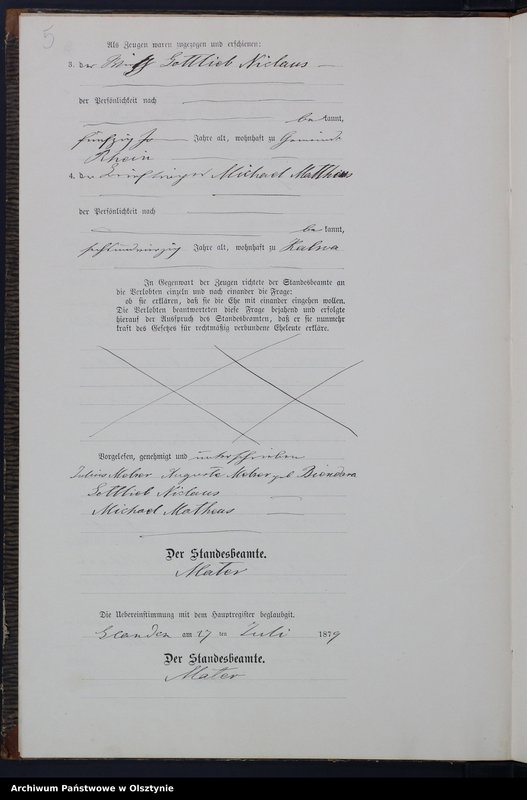 5
Als Zeugen waren zugezogen und erschienen:
3. der Gottlieb Niclaus
der Persönlichkeit nach
bekannt,
fünfzig Jahre alt, wohnhaft zu Gemeinde
Rhein
4. der Michael Mattheus
der Persönlichkeit nach
bekannt,
Jahre alt, wohnhaft zu Kalwa
In Gegenwart der Zeugen richtete der Standesbeamte an
die Verlobten einzeln und nach einander die Frage:
ob sie erklären, daß sie die Ehe mit einander eingehen wollen.
Die Verlobten beantworteten diese Frage bejahend und erfolgte
hierauf der Ausspruch des Standesbeamten, daß er sie nunmehr
kraft des Gesetzes für rechtmäßig verbundene Eheleute erkläre.
Vorgelesen, genehmigt und unterschrieben
Julius Auguste geb
Gottlieb Niclaus
Michael Matheus
Der Standesbeamte.
Mater
Die Uebereinstimmung mit dem Hauptregister beglaubigt.
am 27 ten Juli 1879
Der Standesbeamte.
Mater
Archiwum Państwowe w Olsztynie